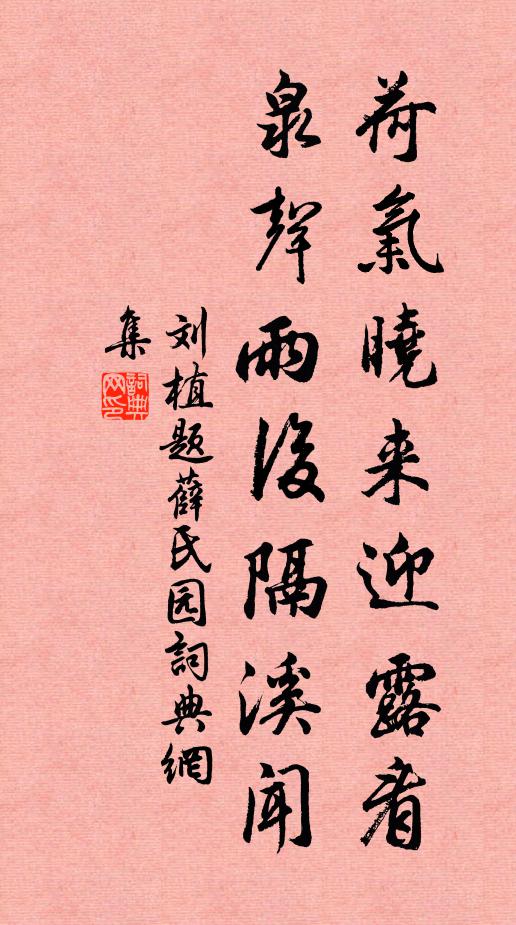 荷氣曉来迎露看
泉聲雨後隔溪聞
刘植题薛氏园詞典網
集
詞典
网印